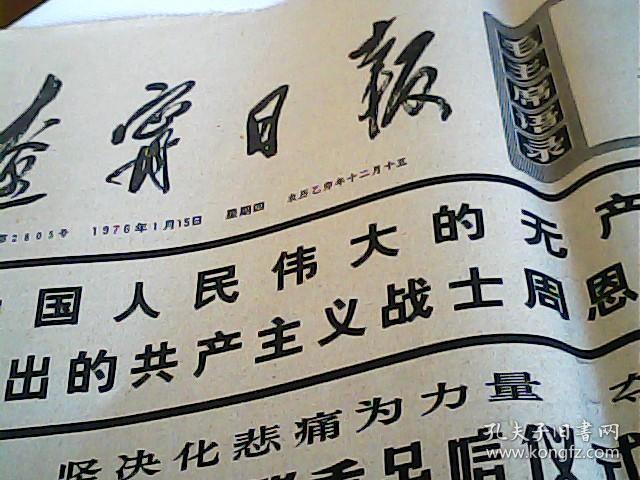 遼寧日报
毛主席语录
第2805号 1976年1月15日 星期四 农历乙卯年十二月十五
中国人民伟大的无产
出的共产主义战士周恩
坚决化悲痛为力量
仪式
孔夫子旧书网
www.kongfz.com